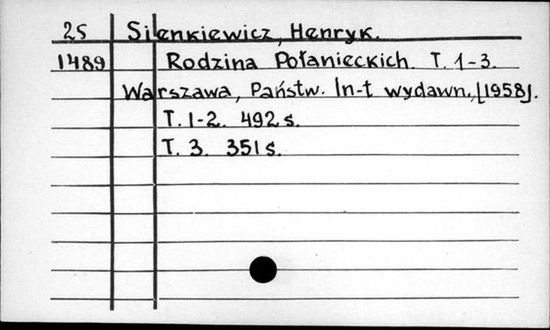 25 Silenkiewicz, Henryk.
1489 Rodzina Połanieckich. T. 1-3.
Warszawa, Państw. In-t wydawn., [1958].
T. 1-2. 492 s.
T. 3. 351 s.